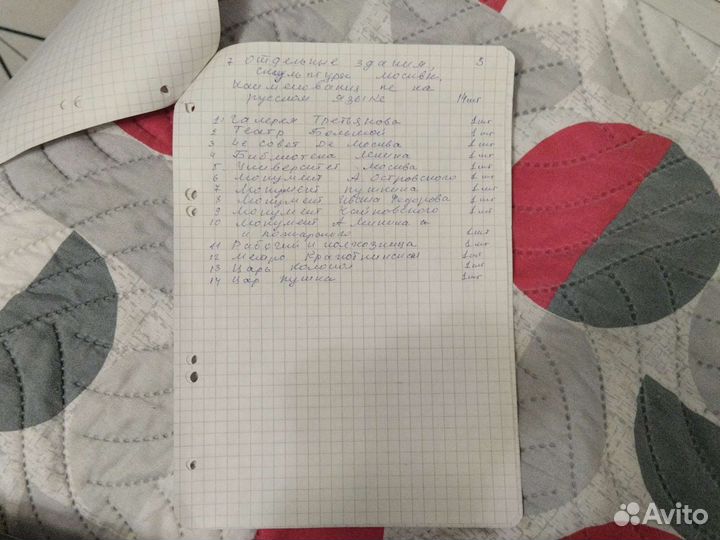 7 Отдельные здания, 3
скульптуры Москвы,
Наименования не на
русском языке 14шт
1. Галерея Третьякова 1шт
2 Театр Большой 1шт
3 Совет Де Москва 1шт
4 Библиотека Ленина 1шт
5 Университет Москва 1шт
6 Монумент А Островского 1шт
7 Монумент Пушкина 1шт
8 Монумент Ивана Федорова 1шт
9 Монумент Чайковского 1шт
10 Монумент А
и Пожарского 1шт
11 Рабочий и колхозница 1шт
12 Метро 1шт
13 Царь Колокол 1шт
14 Цар Пушка 1шт
Avito